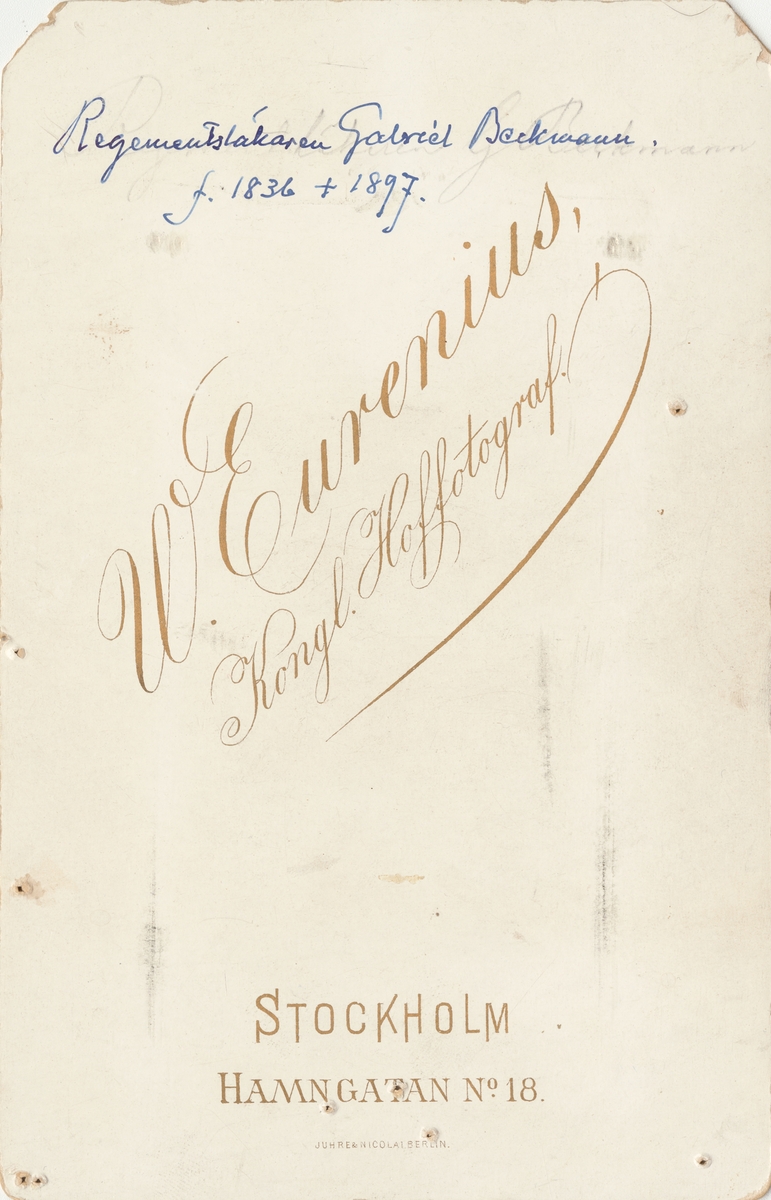 Regementsläkaren Gabriel Beckmann.
f. 1836 + 1897.
W. Eurenius,
Kongl. Hoffotograf.
STOCKHOLM
HAMNGATAN No 18.
JUHRE & NICOLAI BERLIN.